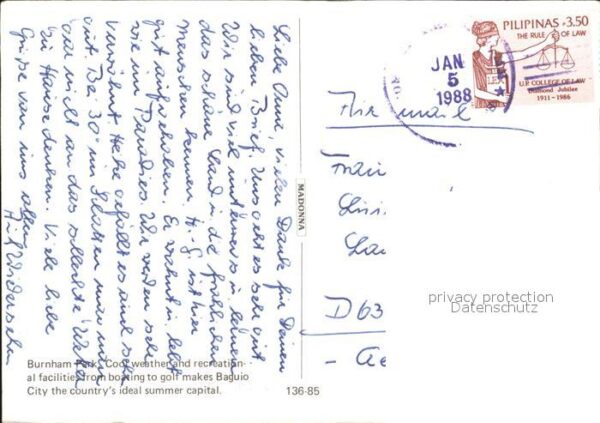 Liebe Oma, vielen Dank für Deinen
lieben Brief. Uns geht es sehr gut
Wir sind viel unterwegs u. lernen
das schöne Land u. die fröhlichen
Menschen kennen. H.-G. ist hier
gut aufgehoben. Er wohnt u. lebt
wie im Paradies. Wir werden sehr
verwöhnt. Hebe gefällt es auch sehr
gut. Bei 30° im Schatten mag man
gar nicht an das schlechte Wetter
zu Hause denken. Viele liebe
Grüße von uns allen
Auf Wiedersehn
PILIPINAS 3.50
THE RULE OF LAW
LEX
U.P. COLLEGE OF LAW
Diamond Jubilee
1911-1986
JAN
5
1988
Air mail
MADONNA
D 63
privacy protection
Datenschutz
Burnham Park. Cool weather and recreation-
al facilities from boating to golf makes Baguio
City the country's ideal summer capital.
136-85